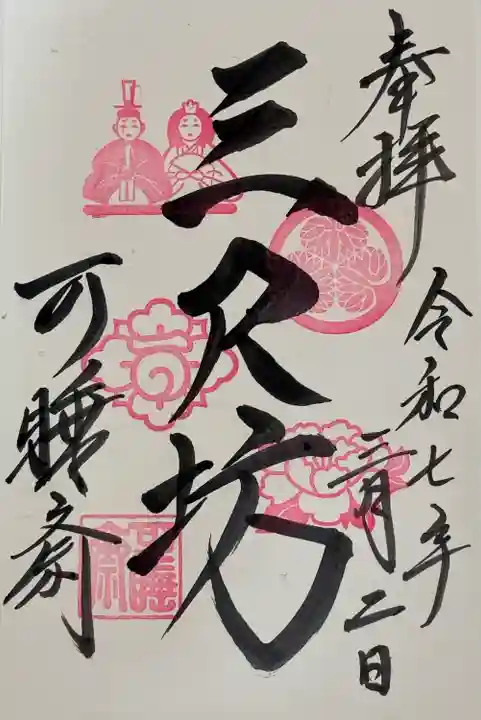 奉拝
令和七年
二月二日
三尺坊
可睡斎
可睡齋